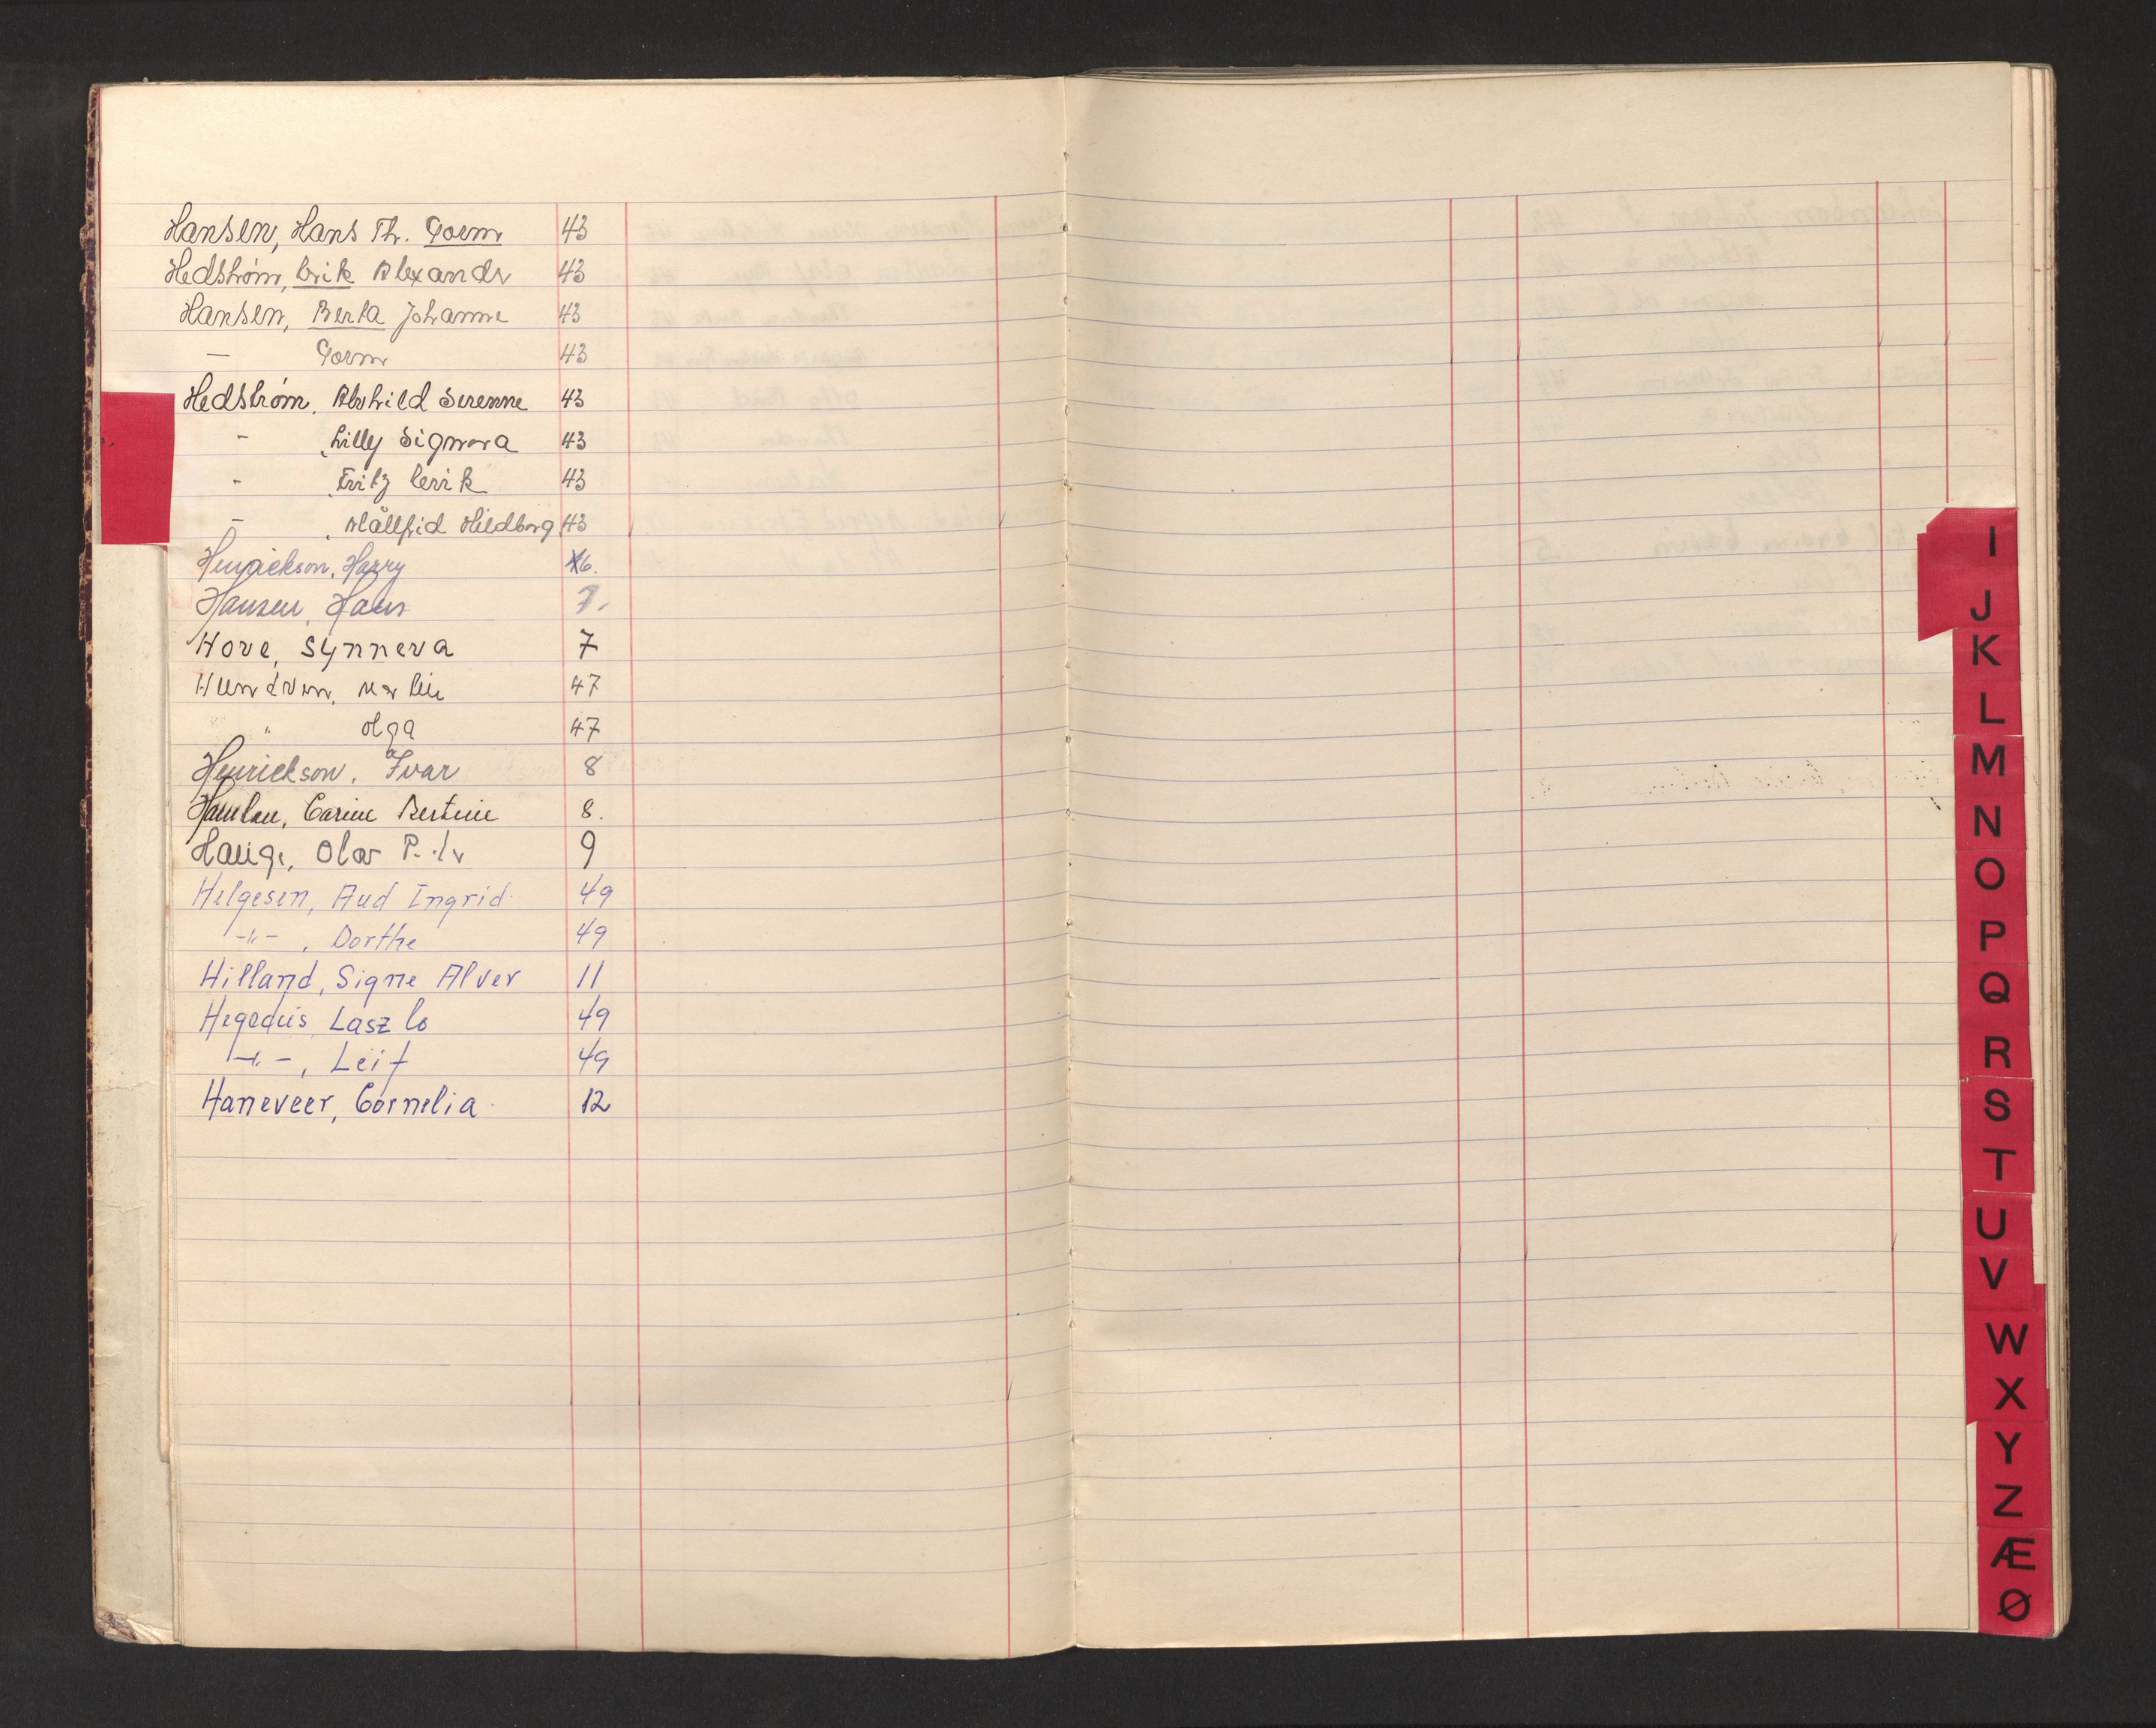 Hansen, Hans Th. Gorm 43
Hedstrøm, Erik Alexander 43
Hansen, Berta Johanne 43
— Gorm 43
Hedstrøm, Alvhild Serenne 43
- , Lilly Signora 43
- , Fritz Eerik 43
- , Målfrid Hildborg 43
Henrickson, Harry 6.
Hansen, Hans 7.
Hove, Synneva 7
Hundven, 47
" Olga 47
Henrickson, Ivar 8
Carine Bertine 8.
Hauge, Olav 9
Helgesen, Aud Ingrid 49
-"- , Dorthe 49
Hilland, Signe Alver 11
Hegedüs, Laszlo 49
-"- , Leif 49
Haneveer, Cornelia 12
I
J
K
L
M
N
O
P
Q
R
S
T
U
V
W
X
Y
Z
Æ
Ø